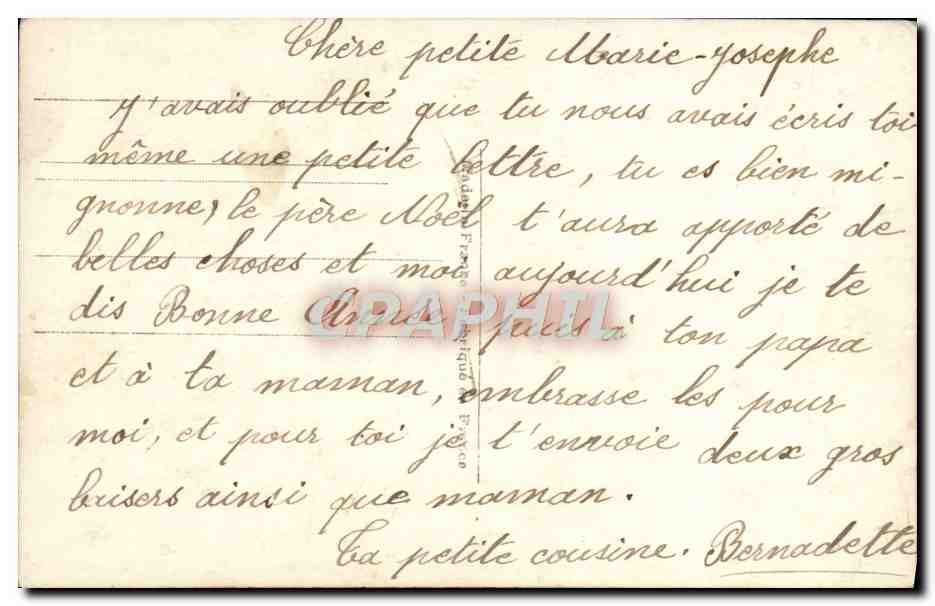 Chère petite Marie-Josephe
J'avais oublié que tu nous avais écris toi
même une petite lettre, tu es bien mi-
gnonne, le père Noël t'aura apporté de
belles choses et moi aujourd'hui je te
dis Bonne Année, puis à ton papa
et à ta maman, embrasse les pour
moi, et pour toi je t'envoie deux gros
baisers ainsi que maman.
Ta petite cousine. Bernadette
CPAPHIL
France